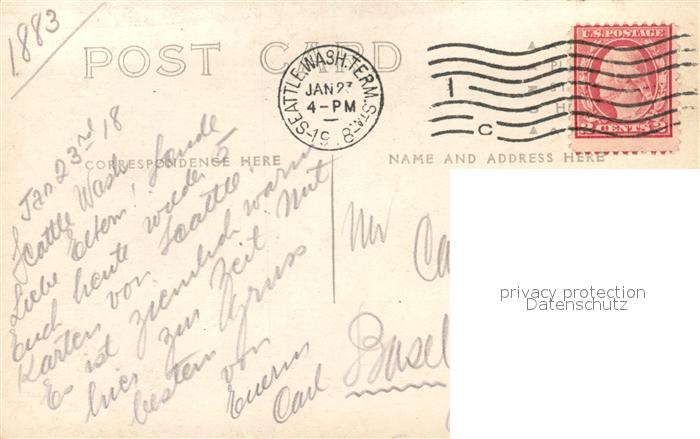 1883
POST CARD
SEATTLE, WASH. TERM. STA.
JAN 23
4-PM
1918
C
U.S. POSTAGE
2 CENTS 2
CORRESPONDENCE HERE
NAME AND ADDRESS HERE
Jan 23rd 18
Seattle Wash
Liebe Eltern! Sende
Euch heute wieder 5
Karten von Seattle.
Es ist ziemlich warm
hier zur Zeit. Mit
bestem Gruss
von
Eurem
Carl
Mr Ca
Basel
privacy protection
Datenschutz